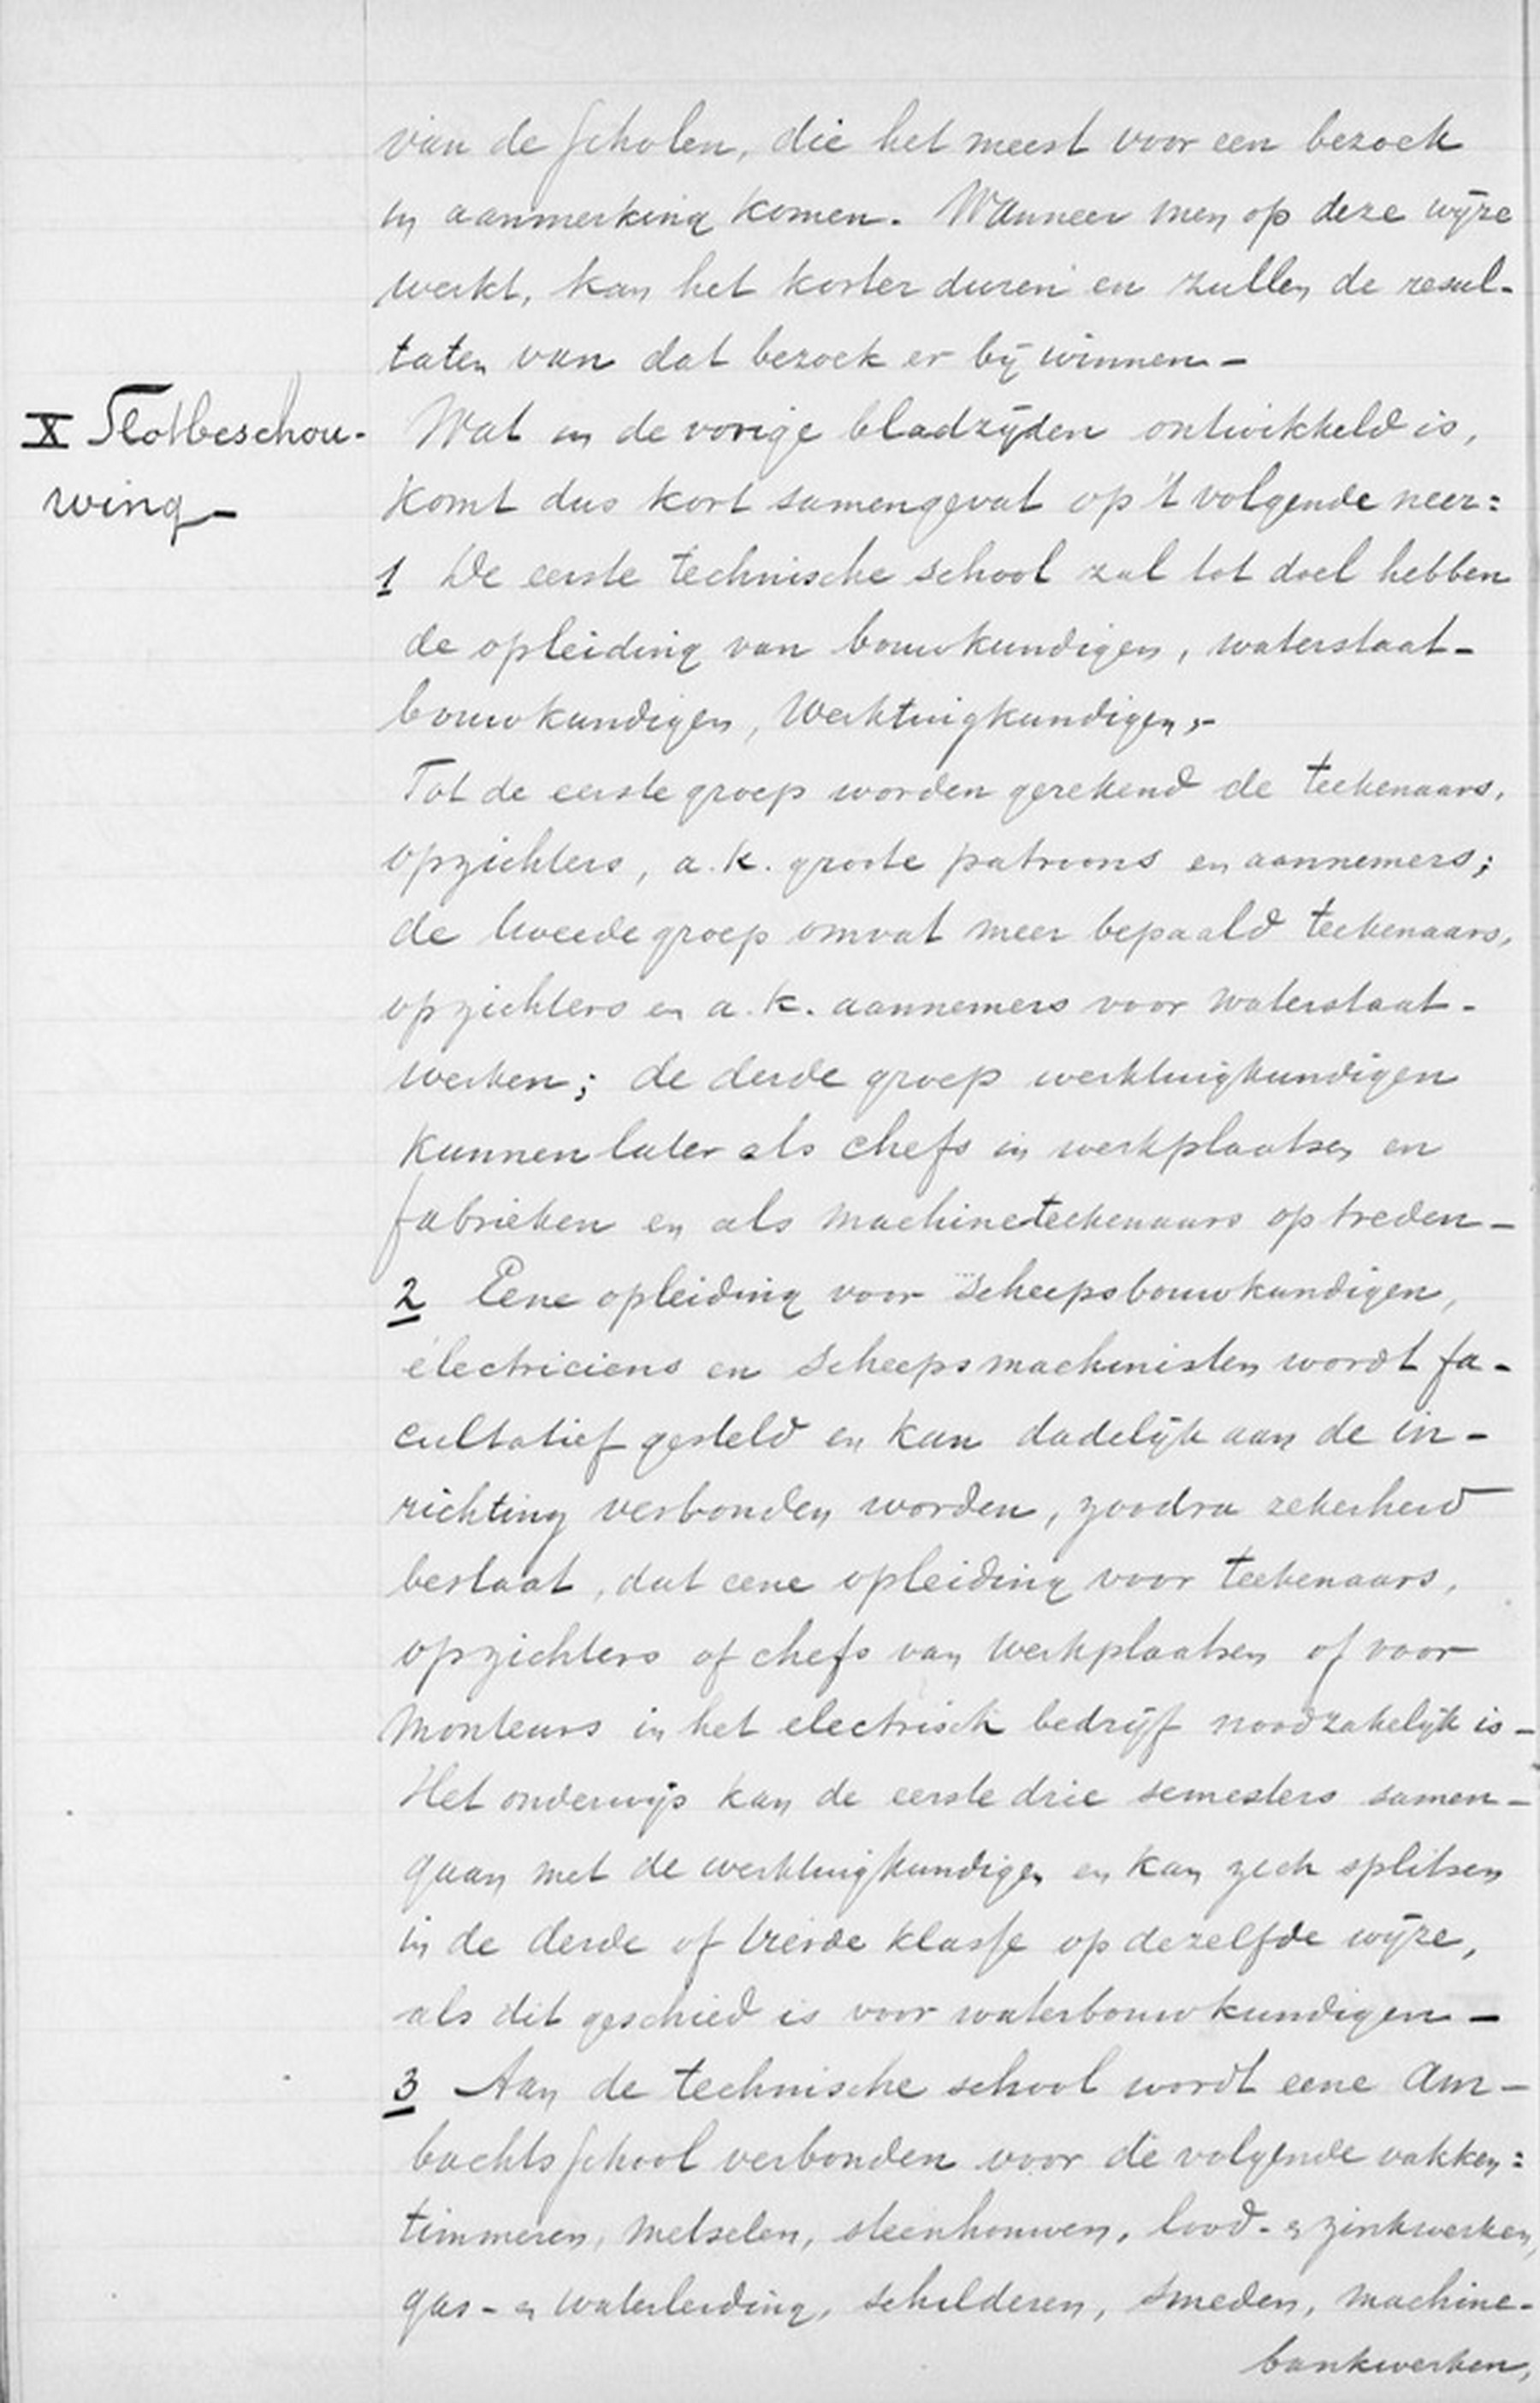 van de scholen, die het meest voor een bezoek
in aanmerking komen. Wanneer men op deze wijze
werkt, kan het korter duren en zullen de resul-
taten van dat bezoek er bij winnen -
X Slotbeschou-
wing -
Wat in de vorige bladzijden ontwikkeld is,
komt dus kort samengevat op 't volgende neer:
1 De eerste technische school zal tot doel hebben
de opleiding van bouwkundigen, waterstaat-
bouwkundigen, Werktuigkundigen,-
Tot de eerste groep worden gerekend de teekenaars,
opzichters, a.k. groote patroons en aannemers;
de tweede groep omvat meer bepaald teekenaars,
opzichters en a.k. aannemers voor waterstaat-
werken; de derde groep werktuigkundigen
kunnen later als chefs in werkplaatsen en
fabrieken en als machineteekenaars optreden -
2 Eene opleiding voor scheepsbouwkundigen,
electriciens en scheepsmachinisten wordt fa-
cultatief gesteld en kan dadelijk aan de in-
richting verbonden worden, zoodra zekerheid
bestaat, dat eene opleiding voor teekenaars,
opzichters of chefs van werkplaatsen of voor
monteurs in het electrisch bedrijf noodzakelijk is -
Het onderwijs kan de eerste drie semesters samen-
gaan met de werktuigkundigen en kan zich splitsen
in de derde of vierde klasse op dezelfde wijze,
als dit geschied is voor waterbouwkundigen -
3 Aan de technische school wordt eene Am-
bachtsschool verbonden voor de volgende vakken:
timmeren, metselen, steenhouwen, lood- & zinkwerken,
gas- & waterleiding, schilderen, smeden, machine-
bankwerken,